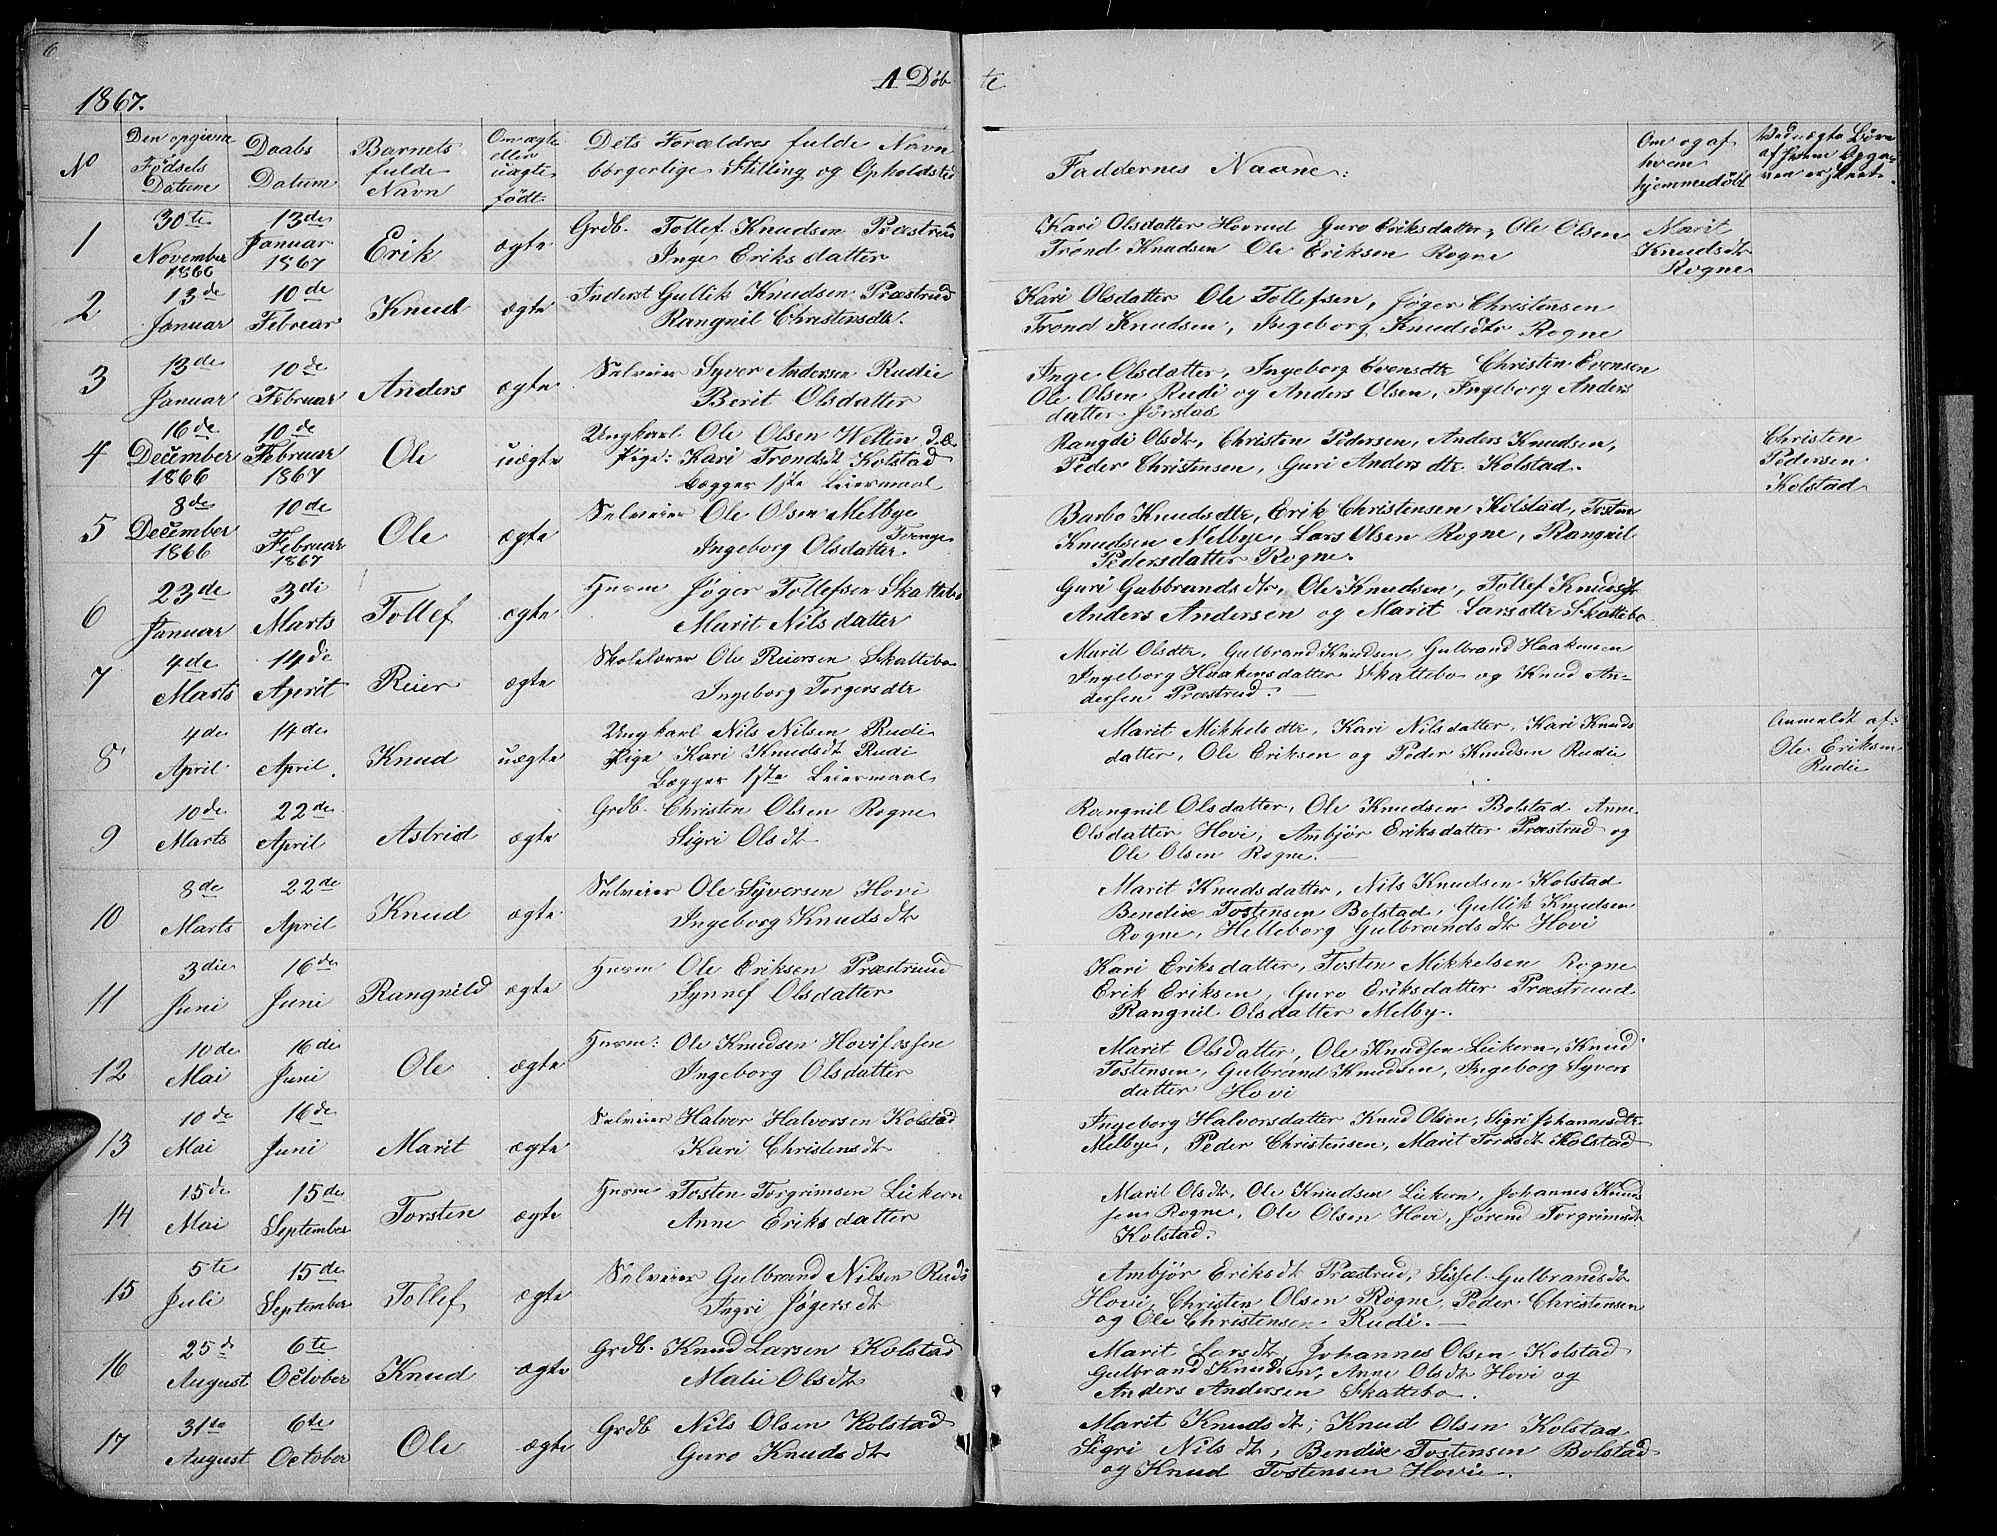 6
7
1867.
A Døb te
No
Den opgivne Fødsels Datum
Daabs Datum
Barnets fulde Navn
Om ægte eller uægte født.
Dets Forældres fulde Navn borgerlige Stilling og Opholdsted
Faddernes Navne:
Om og af hvem hjemmedøbt
Ved uægte Børn af hvem Opgaven er skeet.
1 30te November 1866 13de Januar 1867 Erik ægte Grdb. Tollef Knudsen Præstrud
Inge Eriksdatter
Kari Olsdatter Hovrud Guro Eriksdatter, Ole Olsen
Trond Knudsen Ole Eriksen Rogne
Marit Knudsdtr Rogne
2 13de Januar 10de Februar Knud ægte Inderst Gullik Knudsen Præstrud
Rangnil Christensdtr.
Kari Olsdatter Ole Tollefsen, Jøger Christensen
Trond Knudsen, Ingeborg Knudsdtr Rogne
3 13de Januar 10de Februar Anders ægte Selveier Syver Andersen Rudie
Berit Olsdatter
Inge Olsdatter, Ingeborg Evensdtr Christen Evensen
Ole Olsen Rudi og Anders Olsen, Ingeborg Anders
datter Jørstad
4 16de December 1866 10de Februar 1867 Ole uægte Ungkarl Ole Olsen Welten
Pige: Kari Trondsdt Kolstad
Begges 1ste Leiermaal
Rangdi Olsdt, Christen Pedersen, Anders Knudsen,
Peder Christensen, Guri Andersdtr Kolstad.
Christen Pedersen Kolstad
5 8de December 1866 10de Februar 1867 Ole ægte Selveier Ole Olsen Melbye
Ingeborg Olsdatter
Barbo Knudsdtr, Erik Christensen Kolstad, Tosten
Knudsen Melbye, Lars Olsen Rogne, Rangnil
Pedersdatter Rogne.
6 23de Januar 3di Marts Tollef ægte Husm Jøger Tollefsen Skattebo
Marit Nilsdatter
Guri Gulbrandsdt, Ole Knudsen, Tollef Knudsen
Anders Andersen og Marit Larsdtr Skattebo
7 4de Marts 14de April Reier ægte Skolelærer Ole Reiersen Skattebo
Ingeborg Torgersdtr
Marit Olsdtr, Gulbrand Knudsen, Gulbrand Haakensen
Ingeborg Haakensdatter Skattebo og Knud An-
dersen Præstrud.
8 4de April 14de April. Knud uægte Ungkarl Nils Nilsen Rudi
Pige Kari Knudsdt Rudi
Begges 1ste Leiermaal
Marit Mikkelsdtr, Kari Nilsdatter, Kari Knuds
datter, Ole Eriksen og Peder Knudsen Rudie
Anmeldt af: Ole Eriksen Rudie
9 10de Marts 22de April Astrid ægte Grdb. Christen Olsen Rogne
Sigri Olsdt
Rangnil Olsdatter, Ole Knudsen Bolstad Anne
Olsdatter Hovi, Ambjør Eriksdatter Præstrud og
Ole Olsen Rogne.
10 8de Marts 22de April Knud ægte Selveier Ole Syversen Hovi
Ingeborg Knudsdt
Marit Knudsdatter, Nils Knudsen Kolstad
Bendix Tostensen Bolstad, Gullik Knudsen
Rogne, Helleborg Gulbrandsdt Hovi
11 3die Juni 16de Juni Rangnild ægte Husm Ole Eriksen Præstrud
Synnef Olsdatter
Kari Eriksdatter, Tosten Mikkelsen Rogne
Erik Eriksen, Guro Eriksdatter Præstrud
Rangnil Olsdatter Melby.
12 10de Mai 16de Juni Ole ægte Husm: Ole Knudsen Hovifossen
Ingeborg Olsdatter
Marit Olsdatter, Ole Knudsen Liekern, Knud
Tostensen, Gulbrand Knudsen, Ingeborg Syvers
datter Hovi
13 10de Mai 16de Juni Marit ægte Selveier Halvor Halvorsen Kolstad
Kari Christensdt
Ingeborg Halvorsdatter Knud Olsen, Sigri Johannesdtr
Melbye, Peder Christensen, Marit Torsdt Kolstad
14 15de Mai 15de September Torsten ægte Husm Tosten Torgrimsen Liekern
Anne Eriksdatter
Marit Olsdt, Ole Knudsen Liekern, Johannes Knud
sen Rogne, Ole Olsen Hovi, Jørend Torgrimsdt
Kolstad.
15 5te Juli 15de September Tollef ægte Selveier Gulbrand Nilsen Rudi
Ingri Jøgersdt
Ambjør Eriksdt Præstrud, Sissel Gulbrandsdt
Hovi, Christen Olsen Rogne, Peder Christensen
og Ole Christensen Rudi.
16 25de August 6te October Knud ægte Grdb. Knud Larsen Kolstad
Malie Olsdt
Marit Larsdt, Johannes Olsen Kolstad
Gulbrand Knudsen, Anne Olsdt Hovi og
Anders Andersen Skattebo.
17 31te August 6te October Ole ægte Grdb Nils Olsen Kolstad
Guro Knudsdt
Marit Knudsdt, Knud Olsen Kolstad
Sigri Nilsdt, Bendix Tostensen Bolstad
og Knud Tostensen Hovie.